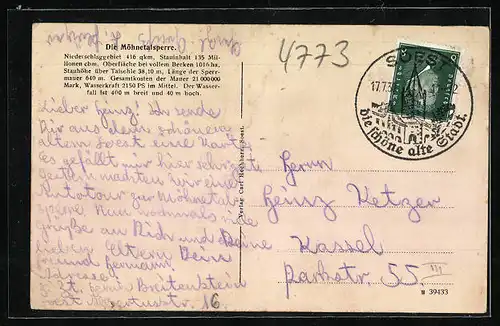 4773
Die Möhnetalsperre.
Niederschlaggebiet 416 qkm, Stauinhalt 135 Mil-
lionen cbm. Oberfläche bei vollem Becken 1016 ha,
Stauhöhe über Talsohle 38,10 m, Länge der Sperr-
mauer 640 m. Gesamtkosten der Mauer 21 000 000
Mark, Wasserkraft 2150 PS im Mittel. Der Wasser-
fall ist 400 m breit und 40 m hoch.
SOEST
17.7.3
die schöne alte Stadt.
Lieber Heinz! Ich sende
Dir aus dem schönen
alten Soest eine Karte.
Es gefällt mir hier sehr gut.
machten wir eine
Autotour zur Möhnetal-
sperre. Nun nochmals viele
Grüße an Dich und Deine
lieben Eltern Dein
Freund Hermann.
Adresse:
z. Zt. Breitenstein
Soest 16
Verlag Carl Soest.
Herrn
Heinz Ketzer
Kassel
Parkstr. 55 III
39433